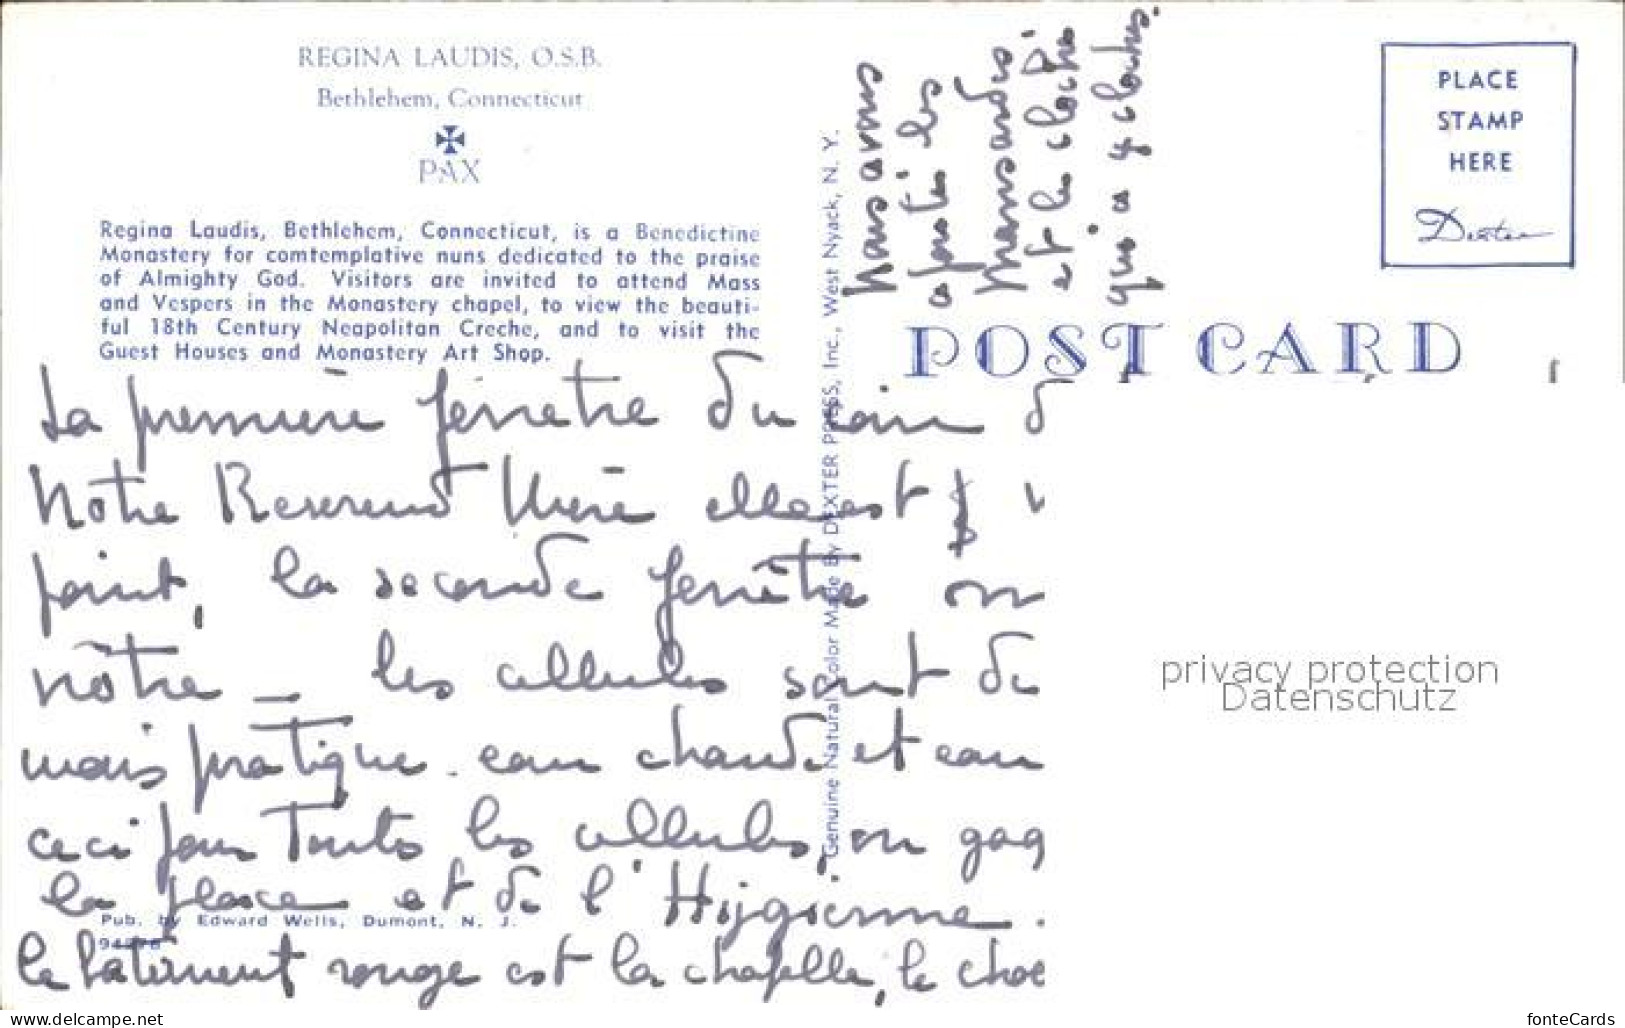 REGINA LAUDIS, O.S.B.
Bethlehem, Connecticut
PAX
Regina Laudis, Bethlehem, Connecticut, is a Benedictine
Monastery for comtemplative nuns dedicated to the praise
of Almighty God. Visitors are invited to attend Mass
and Vespers in the Monastery chapel, to view the beauti-
ful 18th Century Neapolitan Creche, and to visit the
Guest Houses and Monastery Art Shop.
La première fenetre du coin d
Notre Reverend Mère elle est
point, la seconde fenêtre
nôtre _ les cellules sont de
mais pratique. eau chaude et eau
ceci pour toutes les cellules, on gag
la place et de l'Hygienne.
le batiment rouge est la chapelle, le
Pub. by Edward Wells, Dumont, N. J.
Genuine Natural Color Made By DEXTER PRESS, Inc., West Nyack, N. Y.
nous avons
les
mansardes
et les
qui a 4 cloches.
POST CARD
PLACE
STAMP
HERE
Dexter
privacy protection
Datenschutz
www.delcampe.net
fonteCards